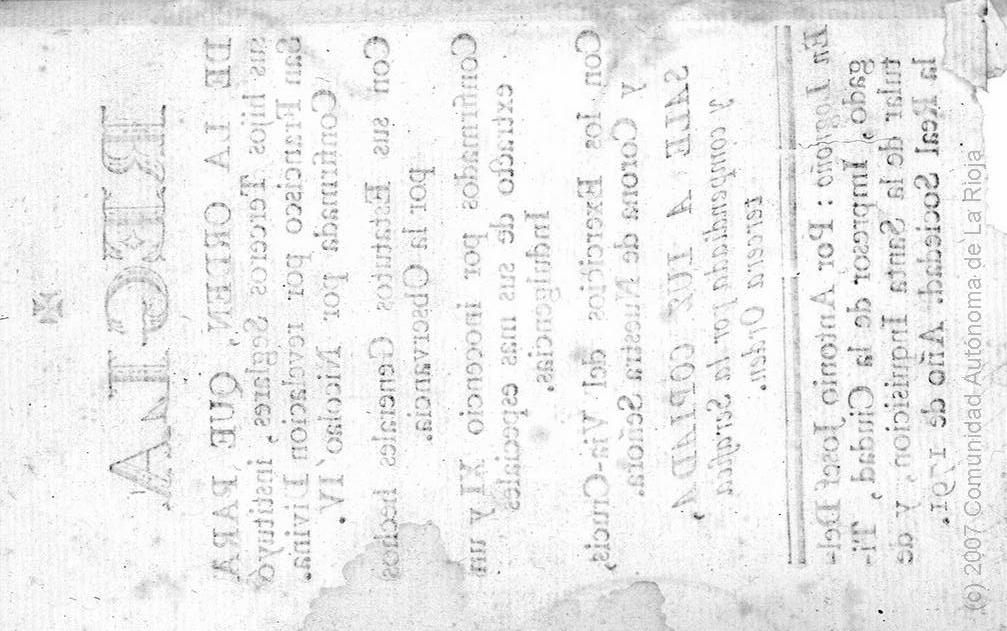 ✠
REGLA
DE LA ORDEN, QUE PARA
sus hijos Terceros Seglares, instituyó
San Francisco por revelacion Divina.
Confirmada por Nicolao IV.
Con sus Estatutos Generales hechos
por la Observancia.
Confirmados por inocencio XI y un
extracto de sus mas especiales
Indulgencias.
Con los Exercicios del Via-Crucis,
y Corona de Nuestra Señora.
SALE A LUZ COPIADA,
y compendiada por la Serafica
tercera Orden.
En Logroño: Por Antonio Josef Del-
gado, Impresor de la Ciudad, Ti-
tular de la Santa Inquisicion, y de
la Real Sociedad. Año de 1791.
(c) 2007 Comunidad Autónoma de La Rioja